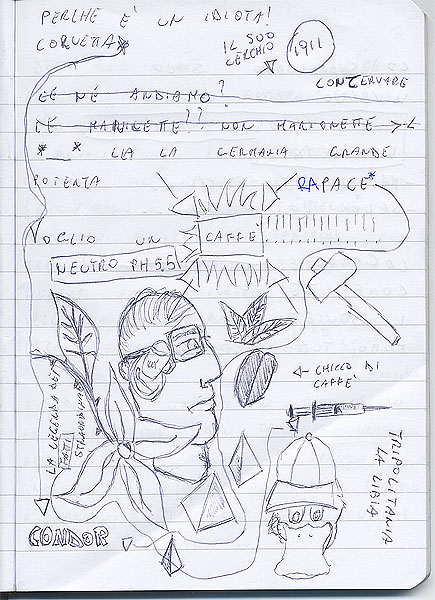 PERCHE E' UN IDIOTA!
CORVETTA*
IL SUO
CERCHIO
1911
CONTERVARE
CE NE ANDIAMO?
LE MARIONETTE?? NON MARIONETTE
*__* LLA LA GERMANIA GRANDE
POTENTA
RAPACE*
VOGLIO UN
CAFFÈ
NEUTRO PH 5,5
← CHICCO DI
CAFFÈ
LA LEGGENDA DEI
FATTI
STRAORDINARI
TRIPOLITANIA
LA LIBIA
CONDOR